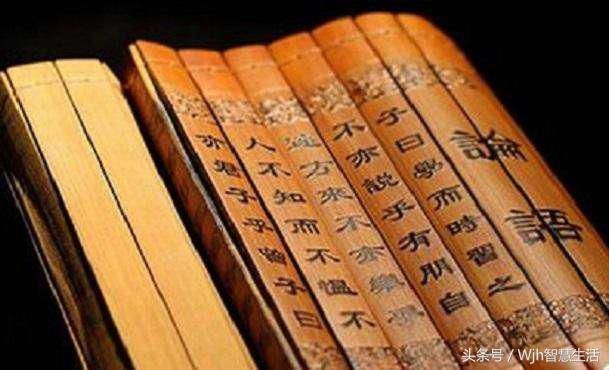 論語
子曰學而時習之
不亦說乎有朋自
遠方來不亦樂乎
人不知而不慍不
亦君子乎曾子曰
头条号 / Wjh智慧生活